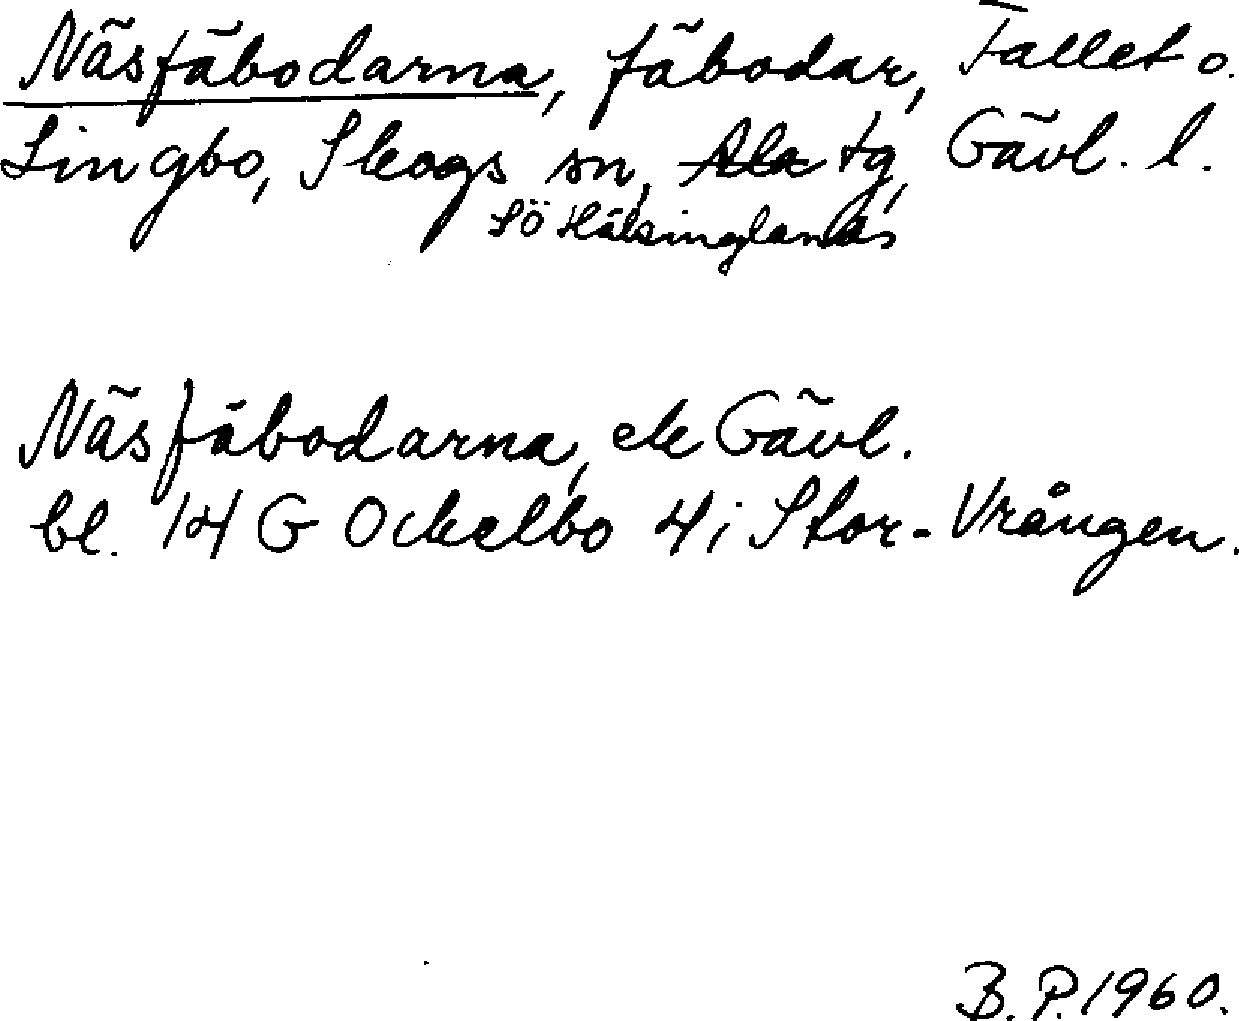 Näsfäbodarna, fäbodar, Fallet o.
Lingbo, Skogs sn, Ala tg, Gävl. l.
Sö Hälsinglands
Näsfäbodarna, ek Gävl.
bl. 14 G Ockelbo 4i Stor-Vrången.
B. P. 1960.